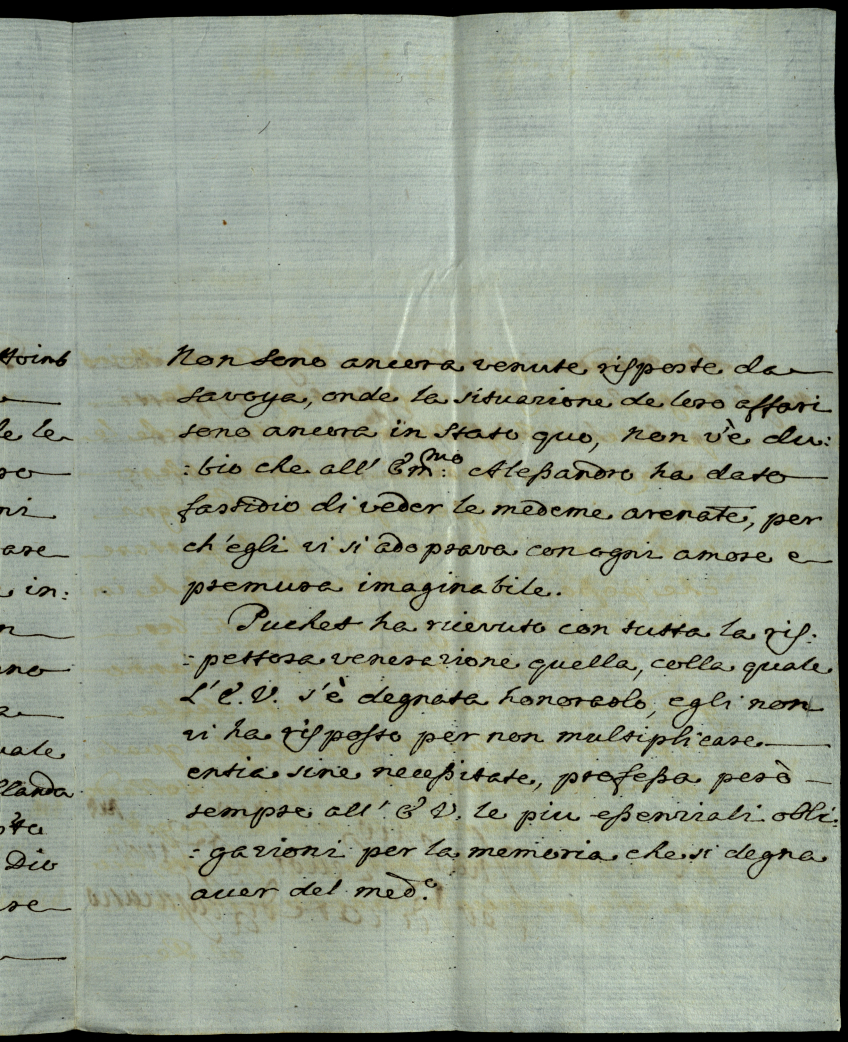 Moins
le le
ro
ni
are
in:
n
no
a
uale
llanda
Dio
re
Non sono ancora venute risposte da
Savoya, onde la situazione de loro affari
sono ancora in stato quo, non v'è du:
:bio che all' Em:mo Alessandro ha dato
fastidio di veder le medeme arenate, per
ch'egli vi si adoprava con ogni amore e
premura imaginabile.
Puchet ha ricevuto con tutta la ris:
:pettosa venerazione quella, colla quale
L'E.V. s'è degnata honorarlo, egli non
vi ha risposto per non multiplicare
entia sine necessitate, professa però
sempre all' E V. le piu essenziali obli:
:gazioni per la memoria che si degna
aver del med:o